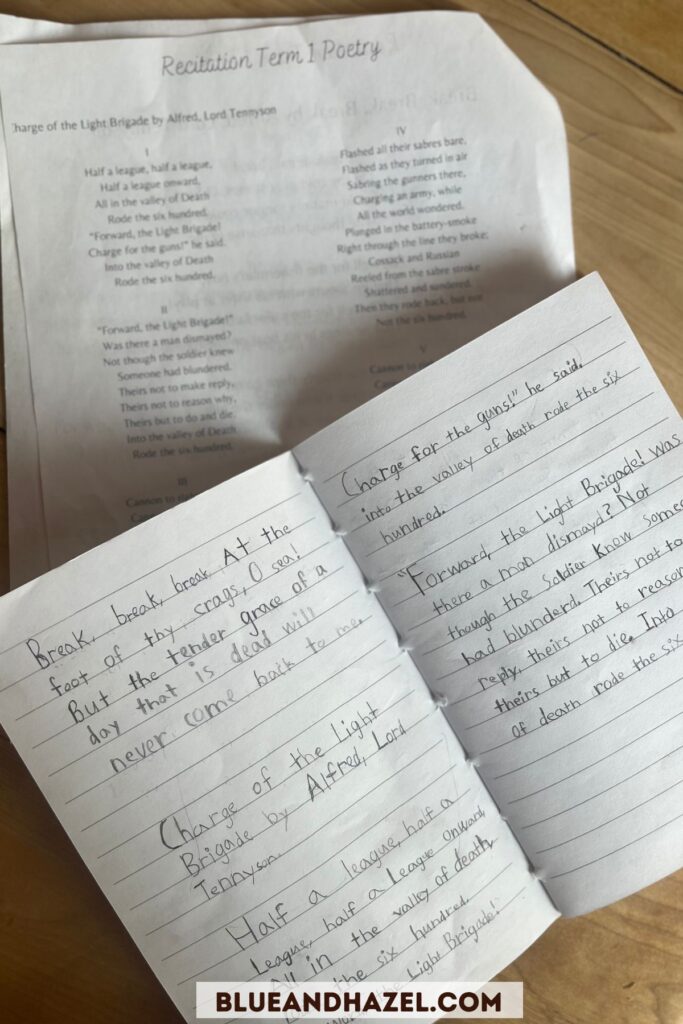 Recitation Term 1 Poetry
harge of the Light Brigade by Alfred, Lord Tennyson
I
Half a league, half a league,
Half a league onward,
All in the valley of Death
Rode the six hundred.
"Forward, the Light Brigade!
Charge for the guns!" he said.
Into the valley of Death
Rode the six hundred.
II
"Forward, the Light Brigade!"
Was there a man dismayed?
Not though the soldier knew
Someone had blundered.
Theirs not to make reply,
Theirs not to reason why,
Theirs but to do and die.
Into the valley of Death
Rode the six hundred.
III
Cannon to
IV
Flashed all their sabres bare,
Flashed as they turned in air
Sabring the gunners there,
Charging an army, while
All the world wondered.
Plunged in the battery-smoke
Right through the line they broke;
Cossack and Russian
Reeled from the sabre stroke
Shattered and sundered.
Then they rode back, but not
Not the six hundred.
V
Cannon to
Break, break, break At the
foot of thy crags, O sea!
But the tender grace of a
day that is dead will
never come back to me.
Charge of the Light
Brigade by Alfred, Lord
Tennyson
Half a league, half a
League, half a League onward,
All in the valley of death
the six hundred.
the Light Brigade!
Charge for the guns!" he said.
into the valley of death rode the six
hundred.
"Forward, the Light Brigade! was
there a man dismayd? Not
though the soldier know some
had blunderd. Theirs not to
reply, theirs not to reason
theirs but to die. Into
of death rode the six
BLUEANDHAZEL.COM